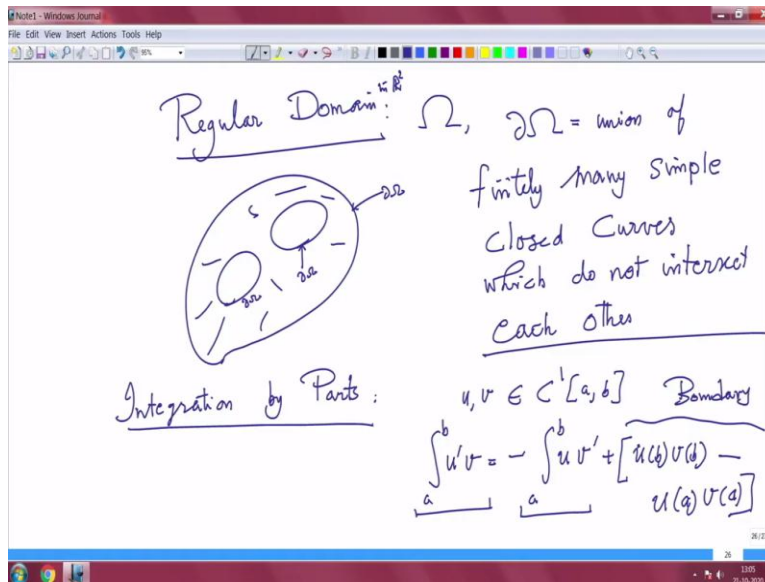 Note1 - Windows Journal
File Edit View Insert Actions Tools Help
95%
Regular Domain: in ℝ² Ω, ∂Ω = union of
finitely many simple
closed curves
which do not intersect
each other
∂Ω
∂Ω
∂Ω
Integration by Parts: u, v ∈ C¹[a, b] Boundary
∫ₐᵇ u'v = - ∫ₐᵇ u v' + [u(b)v(b) -
u(a)v(a)]
26
13:05
21-10-2020